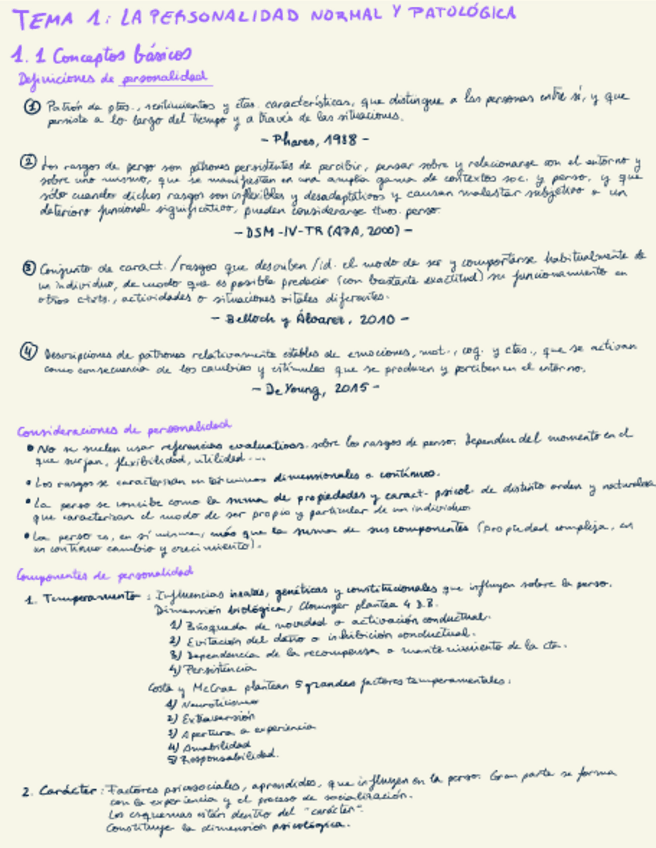 TEMA 1: LA PERSONALIDAD NORMAL Y PATOLÓGICA
1.1 Conceptos básicos
Definiciones de personalidad
① Patrón de ptos., sentimientos y ctas. características, que distingue a las personas entre sí, y que
persiste a lo largo del tiempo y a través de las situaciones.
- Phares, 1988 -
② Los rasgos de perso son patrones persistentes de percibir, pensar sobre y relacionarse con el entorno y
sobre uno mismo, que se manifiestan en una amplia gama de contextos soc. y perso, y que
sólo cuando dichos rasgos son inflexibles y desadaptativos y causan malestar subjetivo o un
deterioro funcional significativo, pueden considerarse ttnos. perso.
- DSM-IV-TR (APA, 2000) -
③ Conjunto de caract./rasgos que describen/id. el modo de ser y comportarse habitualmente de
un individuo, de modo que es posible predecir (con bastante exactitud) su funcionamiento en
otros ctxts., actividades o situaciones vitales diferentes.
- Belloch y Álvarez, 2010 -
④ Descripciones de patrones relativamente estables de emociones, mot., cog. y ctas., que se activan
como consecuencia de los cambios y estímulos que se producen y perciben en el entorno.
- De Young, 2015 -
Consideraciones de personalidad
• No se suelen usar referencias evaluativas sobre los rasgos de perso. Dependen del momento en el
que surjan, flexibilidad, utilidad...
• Los rasgos se caracterizan en términos dimensionales o contínuos.
• La perso se concibe como la suma de propiedades y caract. psicol. de distinto orden y naturaleza
que caracterizan el modo de ser propio y particular de un individuo
• La perso es, en sí misma, más que la suma de sus componentes (propiedad compleja, en
un contínuo cambio y crecimiento).
Componentes de personalidad
1. Temperamento: Influencias innatas, genéticas y constitucionales que influyen sobre la perso.
Dimensión biológica, Cloninger plantea 4 D.B.
1) Búsqueda de novedad o activación conductual.
2) Evitación del daño o inhibición conductual.
3) Dependencia de la recompensa o mantenimiento de la cta.
4) Persistencia
Costa y McCrae plantean 5 grandes factores temperamentales:
1) Neuroticismo
2) Extraversión
3) Apertura a experiencia
4) Amabilidad
5) Responsabilidad.
2. Carácter: Factores psicosociales, aprendidos, que influyen en la perso. Gran parte se forma
con la experiencia y el proceso de socialización.
Los esquemas están dentro del "carácter".
Constituye la dimensión psicológica.